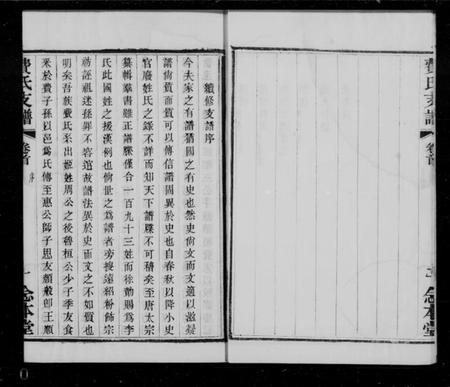 續修支譜序
今夫家之有譜猶國之有史也然史尚文而文適以滋疑
譜尚質而質可以傳信譜固異於史也自春秋以降小史
官廢姓氏之錄不詳而知天下譜牒不可稽矣至唐太宗
纂輯羣書雖正譜牒僅合一百九十三姓而徐勣賜為李
氏此國姓之援漢例也俗世之為譜者旁搜遠紹粉飾宗
祊誣祖迷孫罪不容逭故譜法異於史而文之不如質也
明矣吾族費氏系出姬姓周公之後魯桓公少子季友食
采於費子孫以邑為氏傳至惠公師子思友顏般即王順
費氏支譜
卷首
序
一
費氏支譜
卷首
念本堂